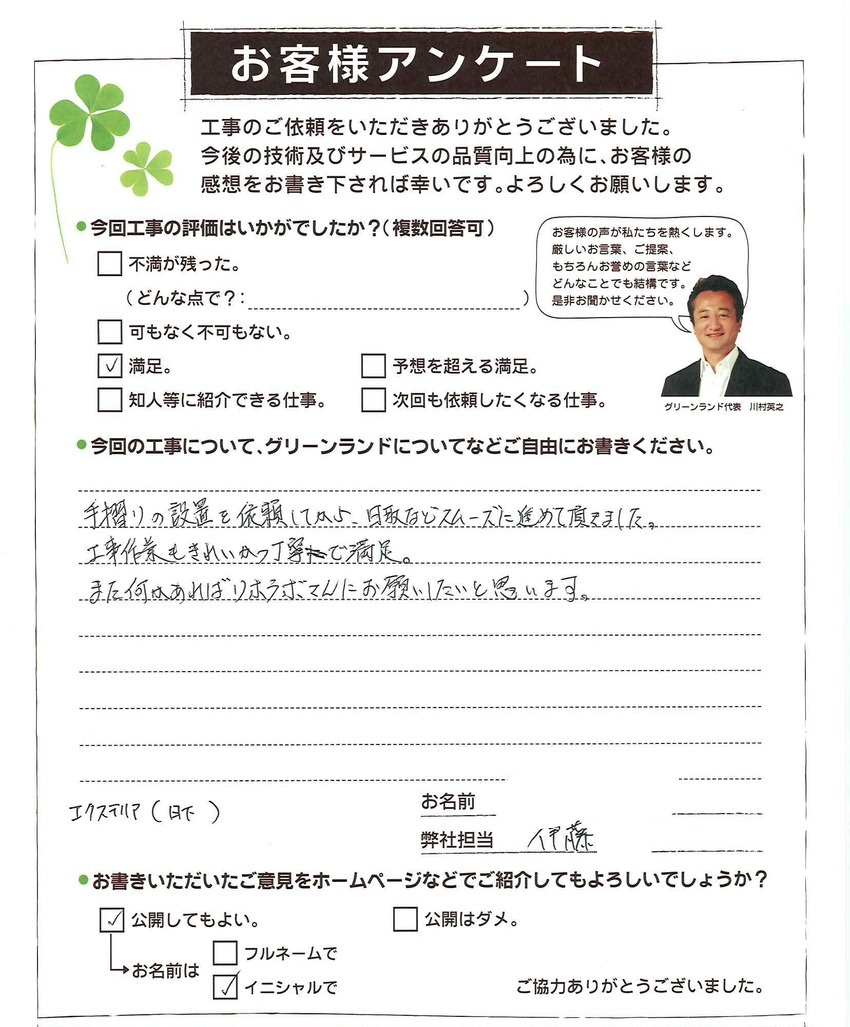 お客様アンケート
工事のご依頼をいただきありがとうございました。
今後の技術及びサービスの品質向上の為に、お客様の
感想をお書き下されば幸いです。よろしくお願いします。
●今回工事の評価はいかがでしたか？（複数回答可）
お客様の声が私たちを熱くします。
厳しいお言葉、ご提案、
もちろんお誉めの言葉など
どんなことでも結構です。
是非お聞かせください。
不満が残った。
（どんな点で？：　　　）
可もなく不可もない。
✓ 満足。　予想を超える満足。
知人等に紹介できる仕事。　次回も依頼したくなる仕事。
グリーンランド代表　川村英之
●今回の工事について、グリーンランドについてなどご自由にお書きください。
手摺りの設置を依頼してから、日取などスムーズに進めて頂きました。
工事作業もきれいかつ丁寧で満足。
また何かあればリホラボさんにお願いしたいと思います。
エクステリア（日下　）
お名前
弊社担当　伊藤
●お書きいただいたご意見をホームページなどでご紹介してもよろしいでしょうか？
✓ 公開してもよい。　公開はダメ。
お名前は　フルネームで
✓ イニシャルで
ご協力ありがとうございました。